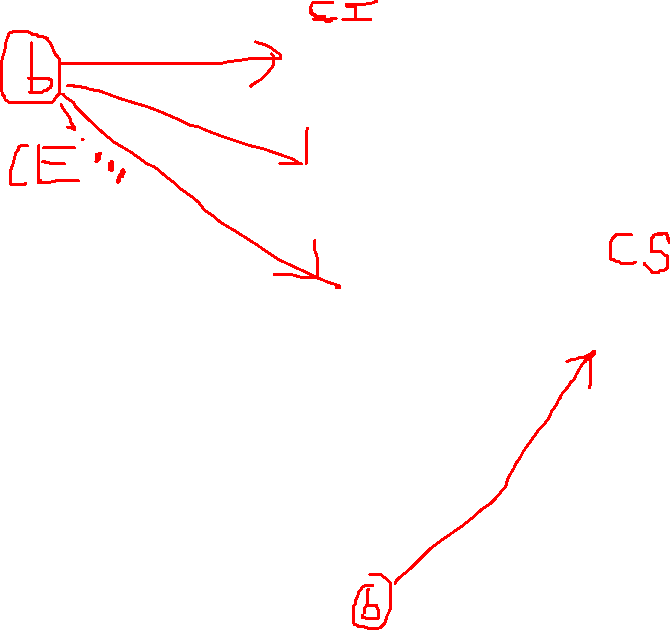 CI
b
CE
CS
b